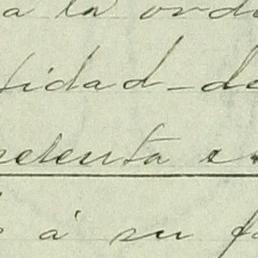 a la orde
tidad de
esenta e
á su f